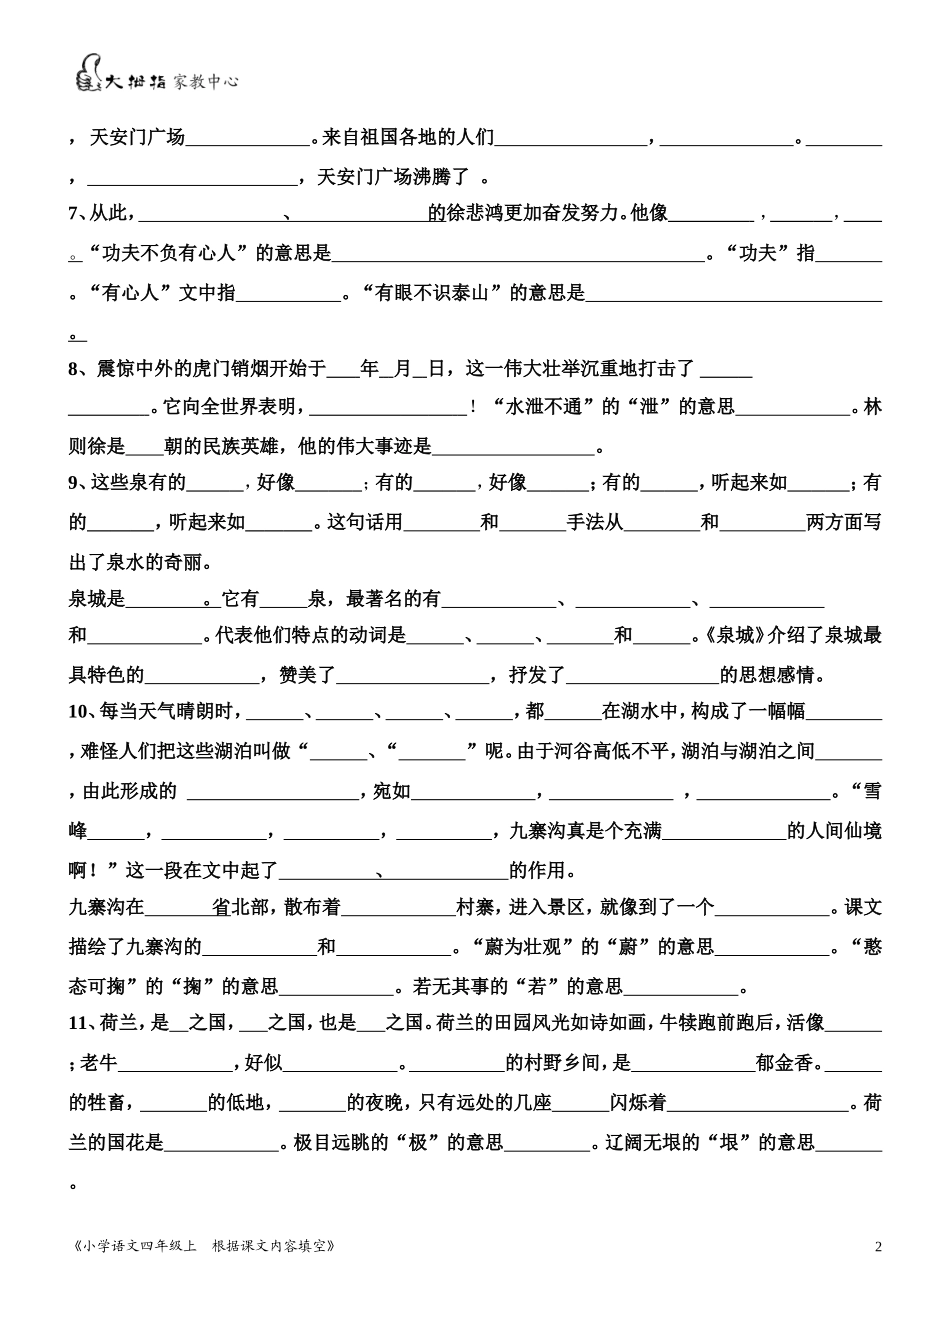 大拇指家教中心
，天安门广场_____________。来自祖国各地的人们________________，______________。________
，______________________，天安门广场沸腾了 。
7、从此，_______________、_____________的徐悲鸿更加奋发努力。他像_________，_______，____
。“功夫不负有心人”的意思是_______________________________________。“功夫”指_______
。“有心人”文中指___________。“有眼不识泰山”的意思是_______________________________
。
8、震惊中外的虎门销烟开始于____年__月__日，这一伟大壮举沉重地打击了 ______
_________。它向全世界表明，_________________！“水泄不通”的“泄”的意思____________。林
则徐是____朝的民族英雄，他的伟大事迹是_________________。
9、这些泉有的______，好像_______；有的_______，好像_______；有的______，听起来如_______；有
的_______，听起来如_______。这句话用________和_______手法从________和_________两方面写
出了泉水的奇丽。
泉城是________。它有_____泉，最著名的有____________、____________、____________
和____________。代表他们特点的动词是______、______、_______和______。《泉城》介绍了泉城最
具特色的____________，赞美了________________，抒发了________________的思想感情。
10、每当天气晴朗时，______、______、______、______，都______在湖水中，构成了一幅幅________
，难怪人们把这些湖泊叫做“______、“_______”呢。由于河谷高低不平，湖泊与湖泊之间_______
，由此形成的 __________________，宛如_____________，_____________ ，______________。“雪
峰______，___________，__________，__________，九寨沟真是个充满_____________的人间仙境
啊！”这一段在文中起了__________、____________的作用。
九寨沟在_______省北部，散布着____________村寨，进入景区，就像到了一个____________。课文
描绘了九寨沟的____________和____________。“蔚为壮观”的“蔚”的意思____________。“憨
态可掬”的“掬”的意思____________。若无其事的“若”的意思____________。
11、荷兰，是__之国，___之国，也是___之国。荷兰的田园风光如诗如画，牛犊跑前跑后，活像______
；老牛____________，好似____________。__________的村野乡间，是_____________郁金香。______
的牲畜，_______的低地，_______的夜晚，只有远处的几座______闪烁着___________________。荷
兰的国花是____________。极目远眺的“极”的意思_________。辽阔无垠的“垠”的意思_______
。
《小学语文四年级上　根据课文内容填空》 2